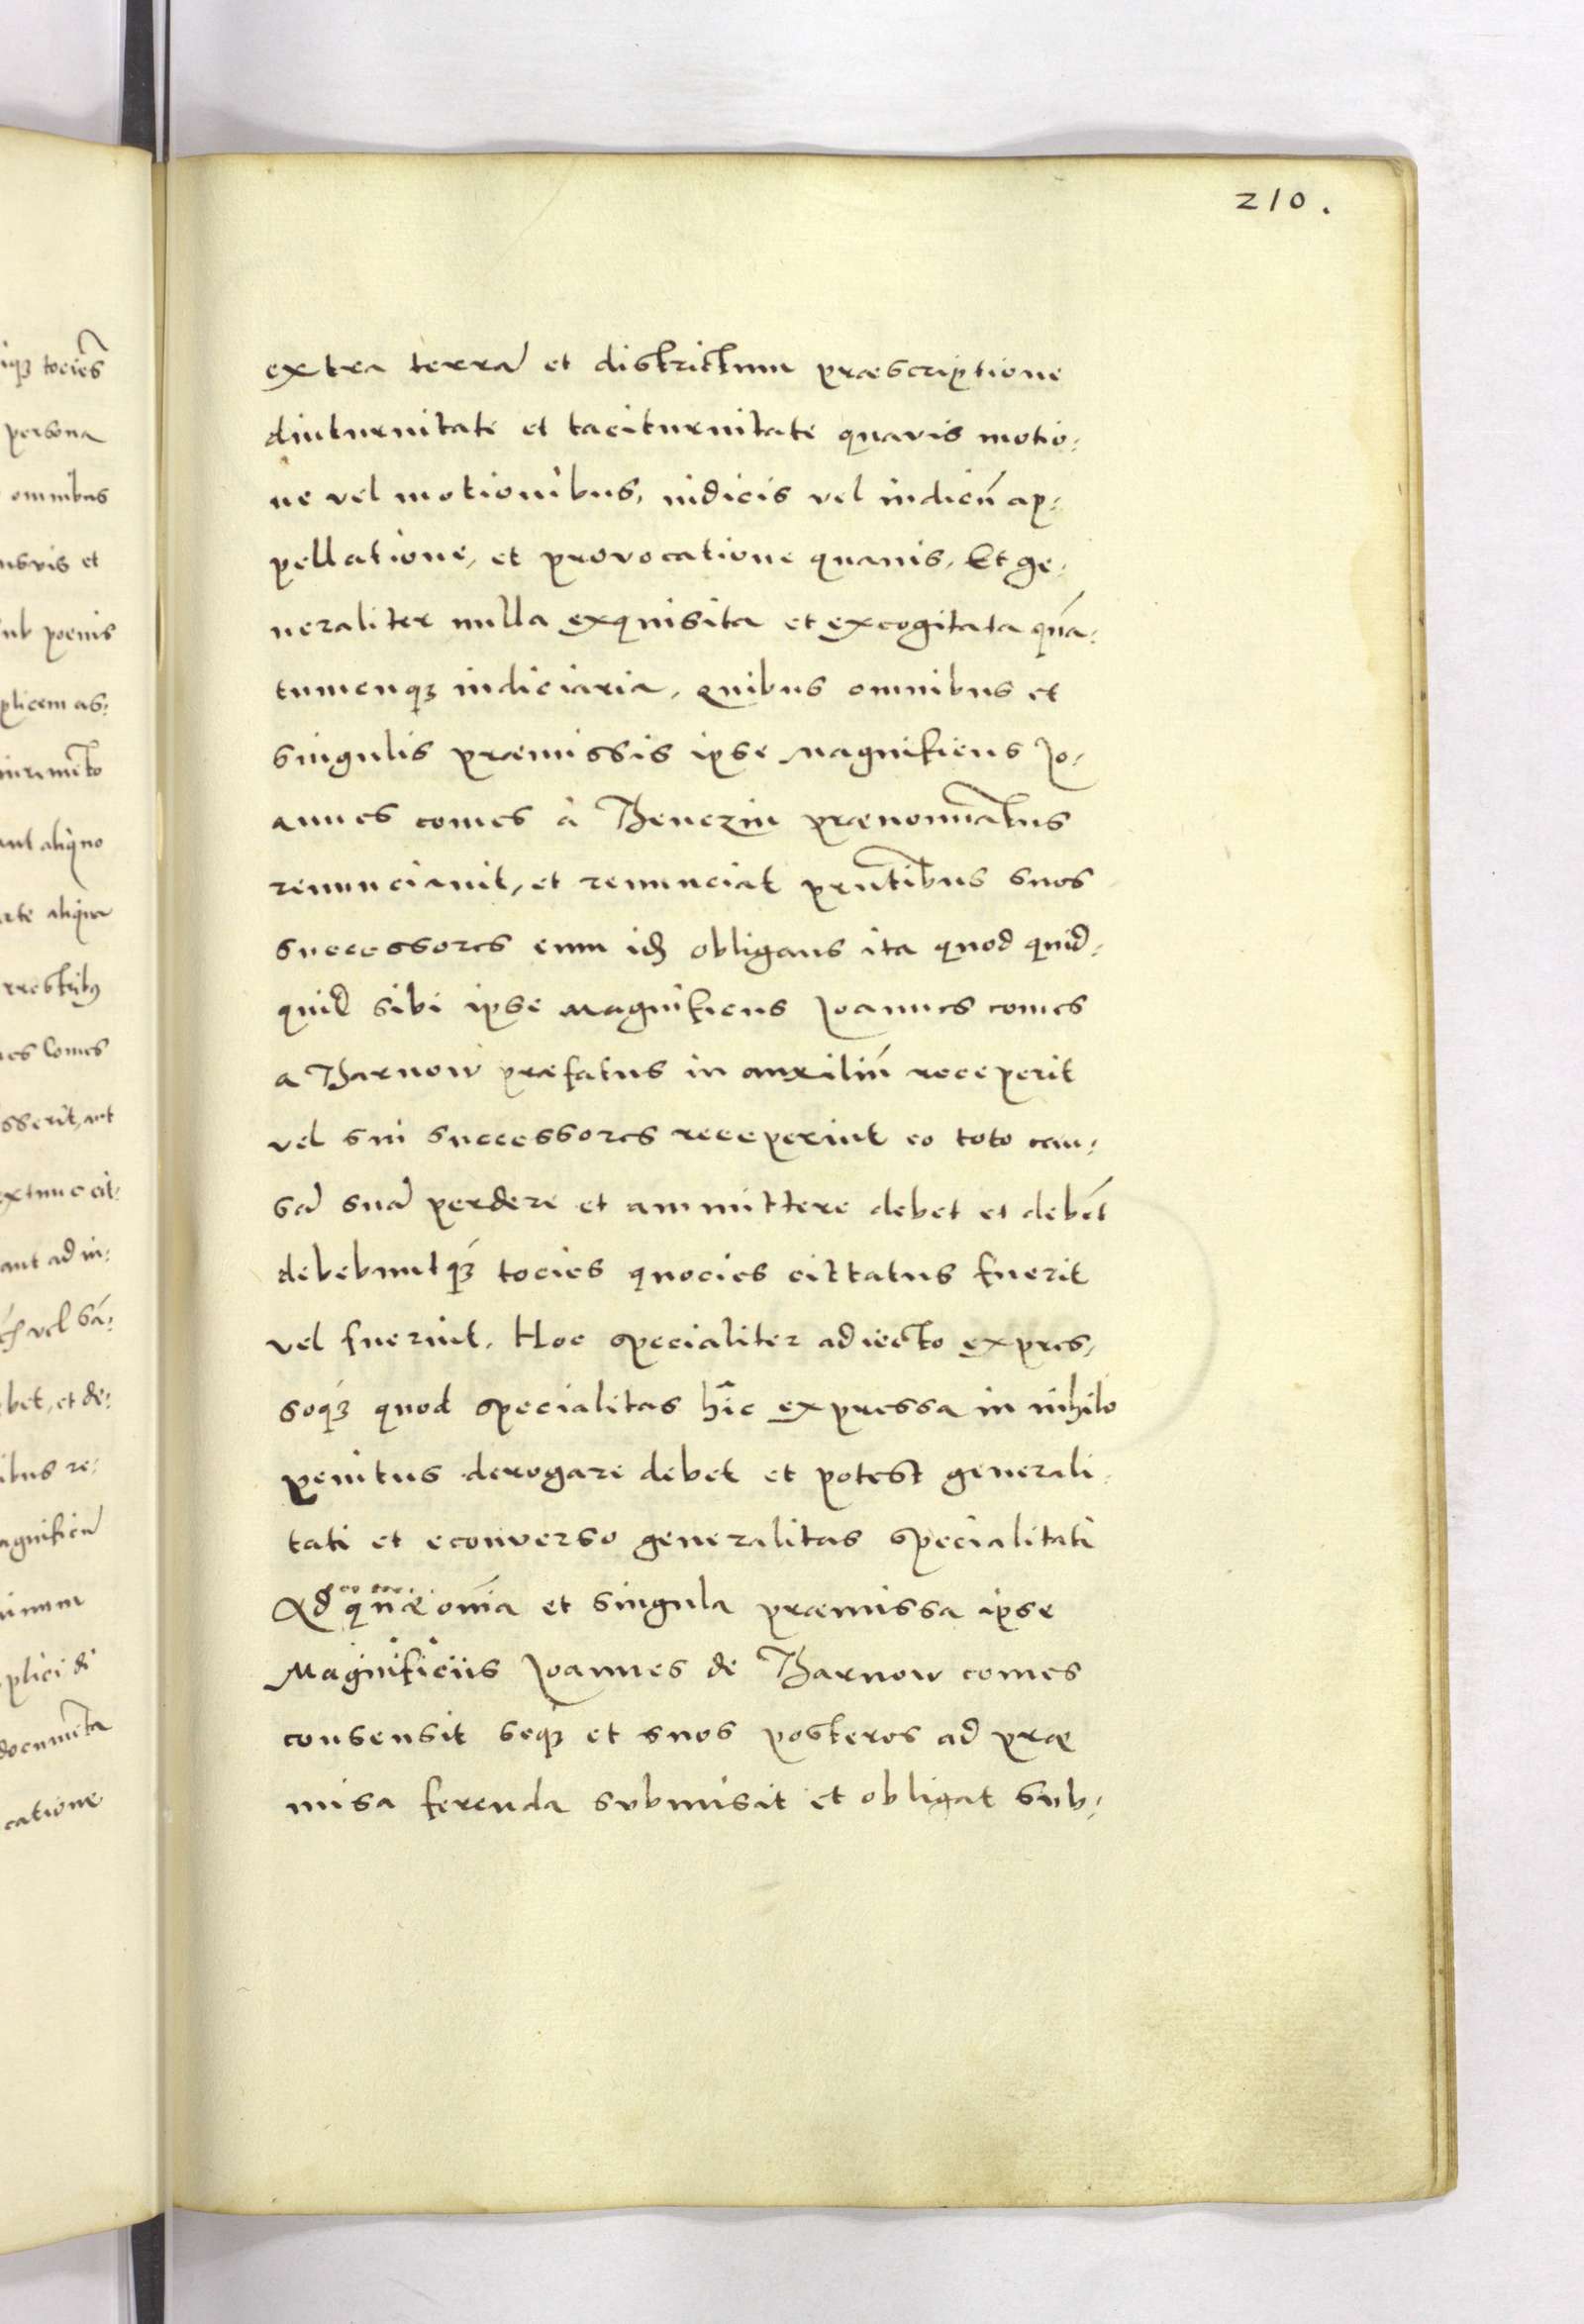 210.
extra terrā et districtum præscriptione
diuturnitate et taciturnitate quavis motio:
ne vel motionibus, iudicis vel iudicū ap:
pellatione, et provocatione quauis. Et ge:
neraliter nulla exquisita et excogitata quā:
tumcuqȝ iudiciaria, quibus omnibus et
singulis præmissis ipse Magnificus Jo:
annes comes à Tenczin prænomīatus
renunciauit, et renunciat prn̄tibus suos
successores cum obligans ita quod quid:
quid sibi ipse Magnificus Joannes comes
a Tarnow præfatus in auxiliū receperit
vel sui successores receperint eo toto cau:
sā suā perdere et ammittere debet et debēt
debebuntqȝ tocies quocies cittatus fuerit
vel fuerint. Hoc specialiter adiecto expres:
soqȝ quod specialitas hic expressa in nihilo
penitus derogare debet et potest generali:
tati et econverso generalitas specialitati
Ad quæ om̄ia et singula præmissa ipse
Magnificus Joannes de Tarnow comes
consensit seqȝ et suos posteros ad præ
misa ferenda submisit et obligat sub:
iqȝ tociēs
persona
omnibus
usvis et
ub poenis
plicem as:
aut aliquo
rte aliqua
es comes
sserit, aut
extunc cit:
aut ad in:
vel sā:
bet, et de:
ibus re:
agnificū
plici di
documēta
catione